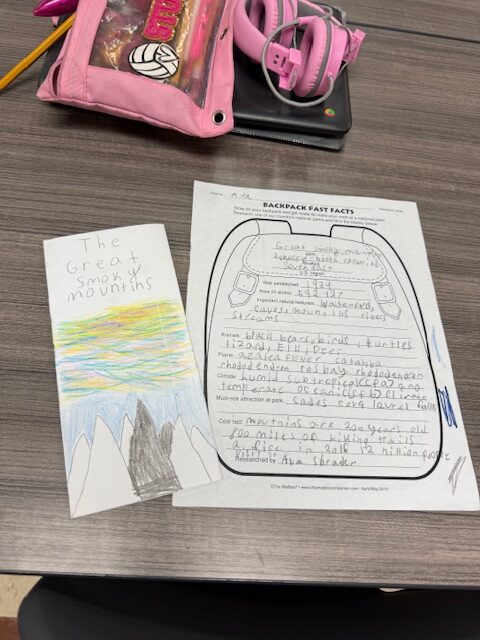 The
Great
smoky
mountins
Name: Ava
BACKPACK FAST FACTS
Strap on your backpack and get ready to make your mark at a national park!
Great smoky mountins
park
Southeast
US region
Year established: 1934
Area (in acres): 522,427
Important natural features: Waterfalls,
caves, mountins rivers
streams
Animals: black bears, birds, turtles
lizard, Elk, Deer
Plants: azalea flower catawba
rhododendren rosbay rhododendren
Climate: humid subtropical (cfa) and
temperate ocean (cfb) climate
Must-see attraction at park: Cades cove laurel falls
Cool fact: mountins are 200 years old
800 miles of hiking trails
a fire in 2016 12 million people
visit
Researched by: Ava Shrader
©The Mailbox® • www.themailboxcompanion.com • April/May 2013